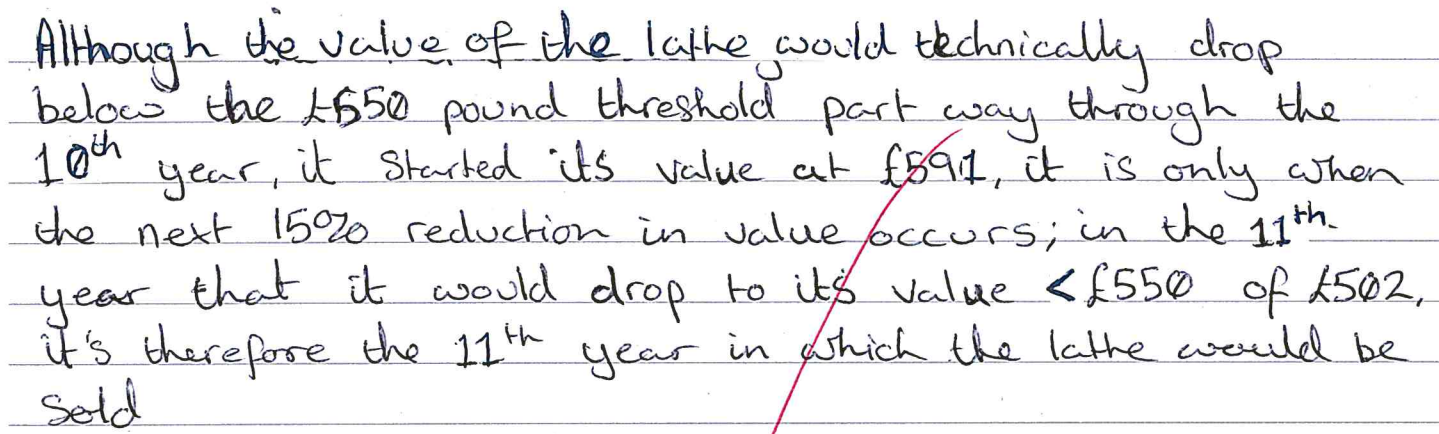 Although the value of the lathe would technically drop
below the £550 pound threshold part way through the
10th year, it started its value at £591, it is only when
the next 15% reduction in value occurs; in the 11th
year that it would drop to its value <£550 of £502,
it's therefore the 11th year in which the lathe would be
sold